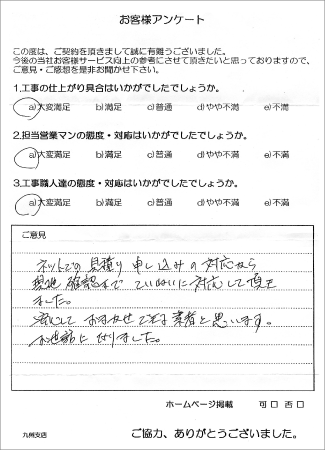 お客様アンケート
この度は、ご契約を頂きまして誠に有難うございました。
今後の当社お客様サービス向上の参考にさせて頂きたいと思っておりますので、
ご意見・ご感想を是非お聞かせ下さい。
1.工事の仕上がり具合はいかがでしたでしょうか。
a)大変満足 b)満足 c)普通 d)やや不満 e)不満
2.担当営業マンの態度・対応はいかがでしたでしょうか。
a)大変満足 b)満足 c)普通 d)やや不満 e)不満
3.工事職人達の態度・対応はいかがでしたでしょうか。
a)大変満足 b)満足 c)普通 d)やや不満 e)不満
ご意見
ネットでの見積り申し込みの対応から
現地確認まで ていねいに対応して頂き
ました。
安心して おまかせできる業者と思います。
お世話になりました。
ホームページ掲載 可□ 否□
九州支店
ご協力、ありがとうございました。